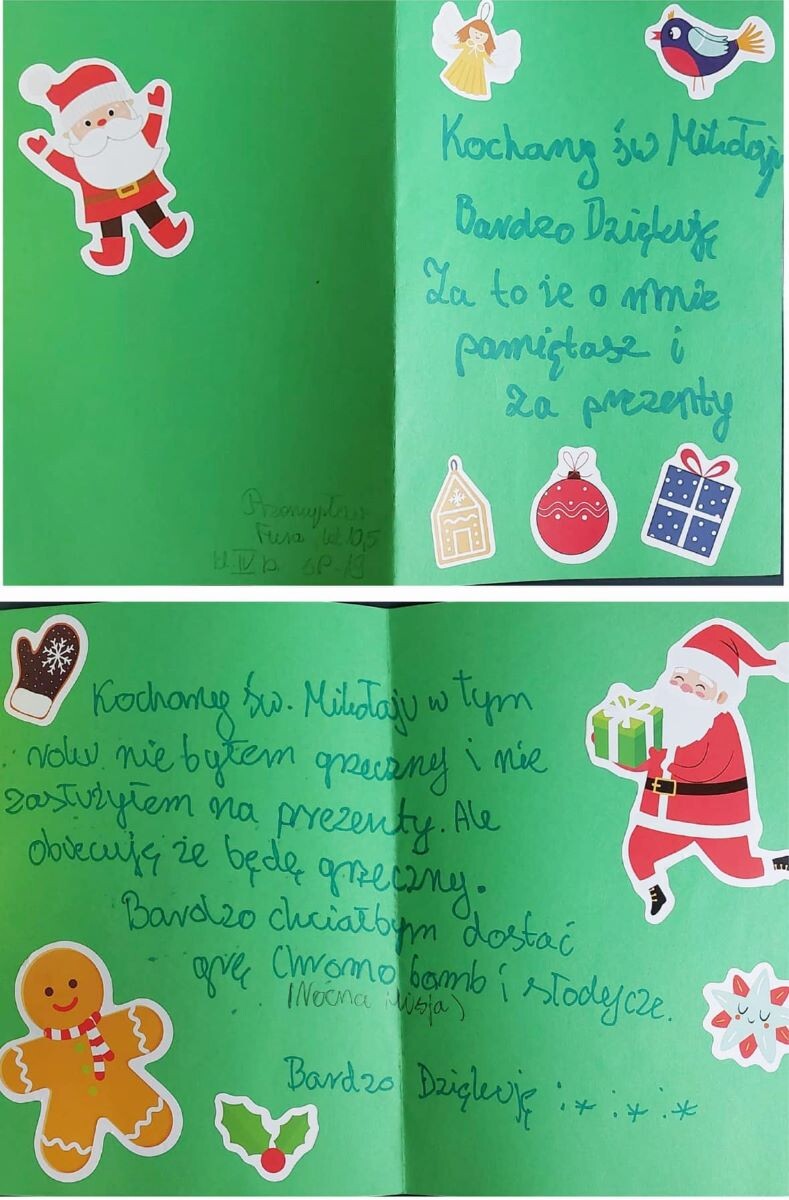 Kochany św Mikołaju
Bardzo Dziękuję
Za to że o mnie
pamiętasz i
za prezenty
lat 10,5
kl. IV b SP-19
Kochany św. Mikołaju w tym
roku nie byłem grzeczny i nie
zasłużyłem na prezenty. Ale
obiecuję że będę grzeczny.
Bardzo chciałbym dostać
grę Chromo bomb i słodycze.
(Nocna Misja)
Bardzo Dziękuję :* :* :*